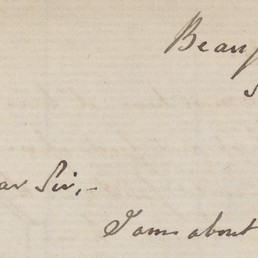 Beauf
ar Sir,-
I am about